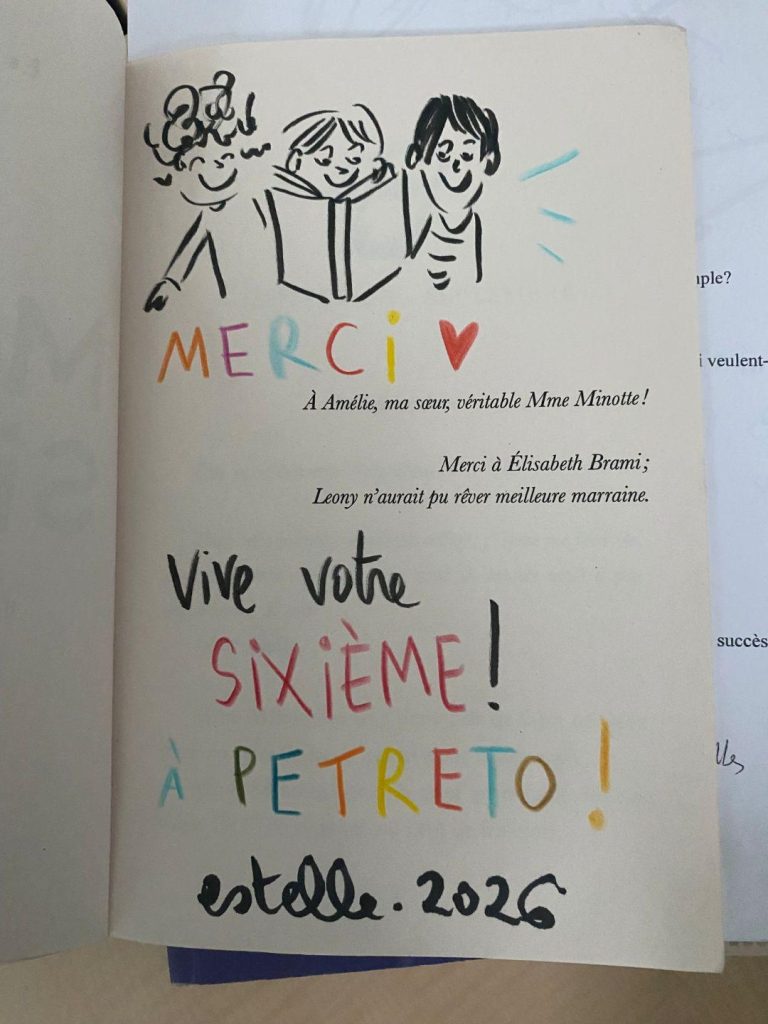 MERCI ♥
À Amélie, ma sœur, véritable Mme Minotte !
Merci à Élisabeth Brami ;
Leony n'aurait pu rêver meilleure marraine.
vive votre
SIXIÈME !
À PETRETO !
estelle. 2026
veulent-
succès